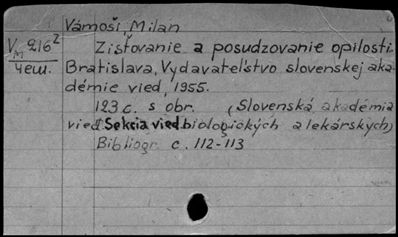 Vámoši, Milan
V 216²
M
4еш. Zisťovanie a posudzovanie opilosti.
Bratislava, Vydavateľstvo slovenskej aka-
démie vied, 1955.
123 с. s obr. (Slovenská akadémia
vied. Sekcia vied biologických a lekárskych)
Bibliogr. с. 112-113